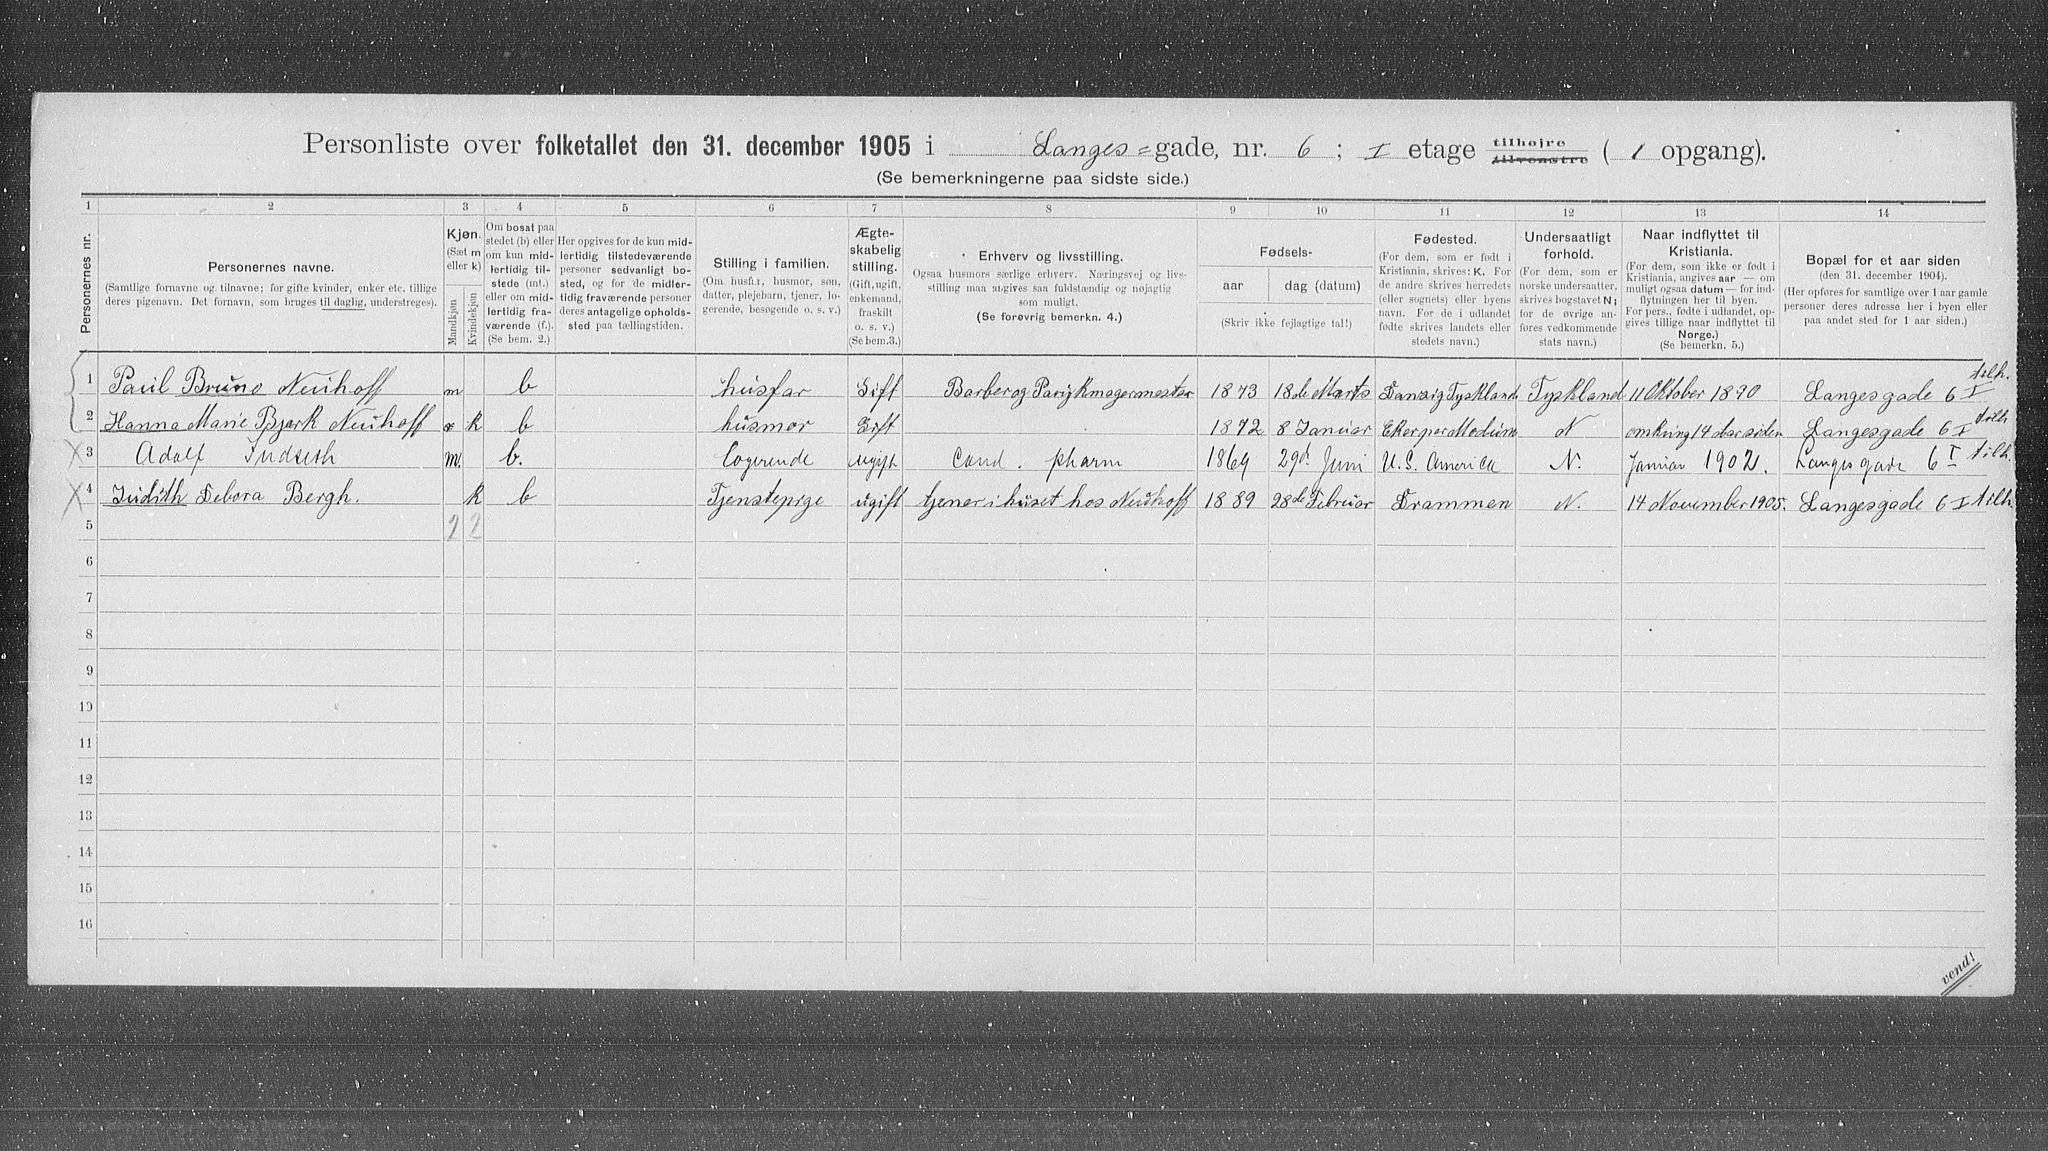 Personliste over folketallet den 31. december 1905 i Langes=gade, nr. 6; I etage tilhøjre tilvenstre (1 opgang).
(Se bemerkningerne paa sidste side.)
1 2 3 4 5 6 7 8 9 10 11 12 13 14
Personernes nr.
Personernes navne.
(Samtlige fornavne og tilnavne; for gifte kvinder, enker etc. tillige
deres pigenavn. Det fornavn, som bruges til daglig, understreges).
Kjøn.
(Sæt m
eller k)
Mandkjøn
Kvindekjøn
Om bosat paa
stedet (b) eller
om kun mid-
lertidig til-
stede (mt.)
eller om mid-
lertidig fra-
værende (f.).
(Se bem. 2.)
Her opgives for de kun mid-
lertidig tilstedeværende
personer sedvanligt bo-
sted, og for de midler-
tidig fraværende personer
deres antagelige opholds-
sted paa tællingstiden.
Stilling i familien.
(Om husfar, husmor, søn,
datter, plejebarn, tjener, lo-
gerende, besøgende o. s. v.)
Ægte-
skabelig
stilling.
(Gift, ugift,
enkemand,
fraskilt
o. s. v.)
(Se bem.3.)
Erhverv og livsstilling.
Ogsaa husmors særlige erhverv. Næringsvej og livs-
stilling maa angives saa fuldstændig og nøjagtig
som muligt.
(Se forøvrig bemerkn. 4.)
Fødsels-
aar
dag (datum)
(Skriv ikke fejlagtige tal!)
Fødested.
(For dem, som er født i
Kristiania, skrives: K. For
de andre skrives herredets
(eller sognets) eller byens
navn. For de i udlandet
fødte skrives landets eller
stedets navn.)
Undersaatligt
forhold.
(For dem, som er
norske undersaatter,
skrives bogstavet N;
for de øvrige an-
føres vedkommende
stats navn.)
Naar indflyttet til
Kristiania.
(For dem, som ikke er født i
Kristiania, angives aar — om
muligt ogsaa datum — for ind-
flytningen her til byen.
For pers., fødte i udlandet, op-
gives tillige naar indflyttet til
Norge.)
(Se bemerkn. 5.)
Bopæl for et aar siden
(den 31. december 1904).
(Her opføres for samtlige over 1 aar gamle
personer deres adresse her i byen eller
paa andet sted for 1 aar siden.)
1 Paul Bruno Neuhoff m b husfar Gift Barber og Parykmagermester 1873 18de Marts Danzig Tyskland Tyskland 11 Oktober 1890 Langesgade 6 I tilh.
2 Hanna Marie Bjørk Neuhoff k b husmor Gift 1872 8 Januar Eker per Modum N omkring 14 Aar siden Langesgade 6 I tilh
3 Adolf Indseth m. b. Logerende ugift cand. pharm 1869 29d Juni U.S. America N. Januar 1902. Langesgade 6 I tilh.
4 Judith Debora Bergh. k b Tjenstepige ugift tjener i huset hos Neuhoff 1889 28de Februar Drammen N. 14 November 1905. Langesgade 6 I tilh.
5 2 2
6
7
8
9
10
11
12
13
14
15
16
vend!